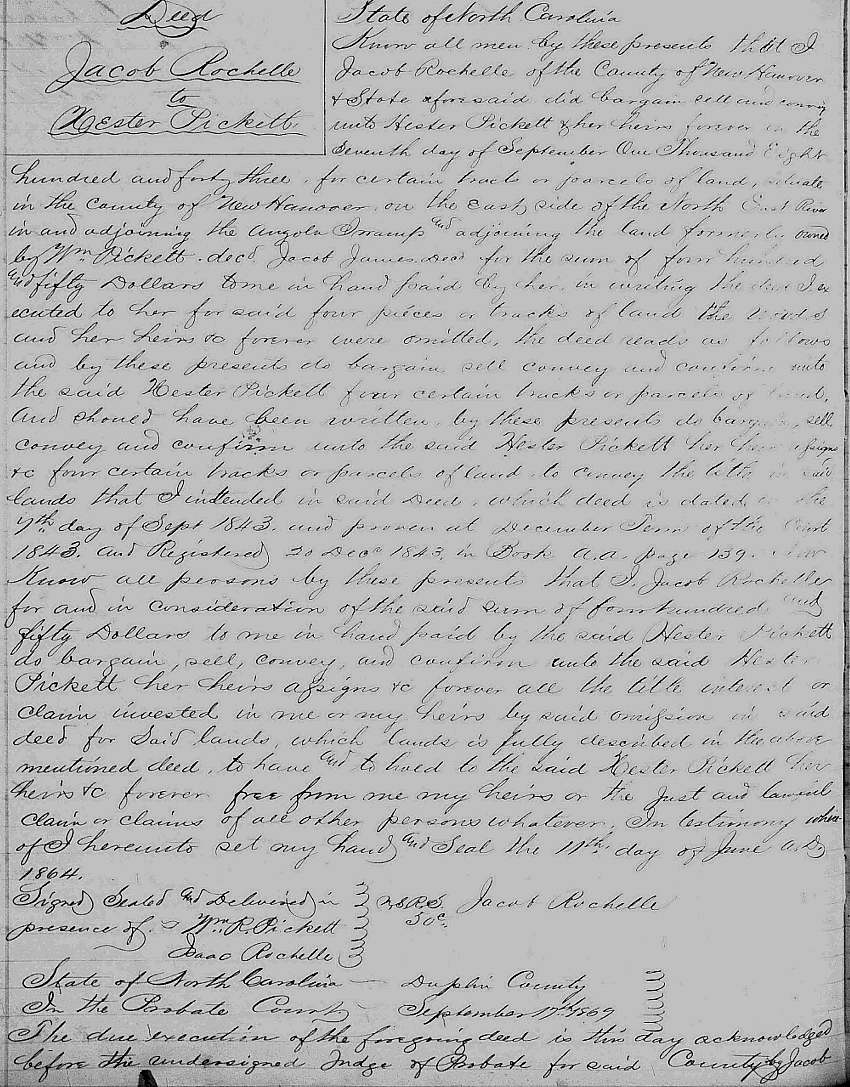 Deed
Jacob Rochelle
to
Hester Pickett
State of North Carolina
Know all men by these presents that I
Jacob Rochelle of the County of New Hanover
& State aforesaid did bargain sell and convey
unto Hester Pickett & her heirs forever on the
Seventh day of September One Thousand Eight
hundred and forty three, for certain tracts or parcels of land, situate
in the County of New Hanover on the east side of the North East River
in and adjoining the Angola Swamp and adjoining the land formerly owned
by Wm Pickett decd, Jacob James Decd for the sum of four hundred
and fifty Dollars to me in hand paid by her, in writing the deed I ex
ecuted to her for said four pieces or tracks of land the words
and her heirs &c forever were omitted, the deed reads as follows
and by these presents do bargain sell convey and confirm unto
the said Hester Pickett four certain tracks or parcels of land,
And should have been written, by these presents do bargain, sell
convey and confirm unto the said Hester Pickett her heirs assigns
&c four certain tracks or parcels of land to convey the title in said
lands that I inttended in said Deed, which deed is dated on the
7th day of Sept 1843. and proven at December Term of the Court
1843. and Registered 20 Dec 1843. in Book a.a. page 139. Now
Know all persons by these presents that I, Jacob Rochelle
for and in consideration of the said sum of four hundred and
fifty Dollars to me in hand paid by the said Hester Pickett
do bargain, sell, convey, and confirm unto the said Hester
Pickett her heirs assigns &c forever all the title interest or
claim invested in me or my heirs by said omission in said
deed for said lands, which lands is fully described in the above
mentioned deed, to have and to hold to the said Hester Pickett her
heirs &c forever free from me my heirs or the just and lawful
claim or claims of all other persons whatever, In testimony where
of I hereunto set my hand and Seal the 11th day of June A.D.
1864.
Signed Sealed and Delivered in U.S.R.S. Jacob Rochelle
presence of Wm R. Pickett 50c.
Isaac Rochelle
State of North Carolina Duplin County
In the Probate Court September 17th 1869
The due execution of the foregoing deed is this day acknowledged
before the undersigned Judge of Probate for said County by Jacob